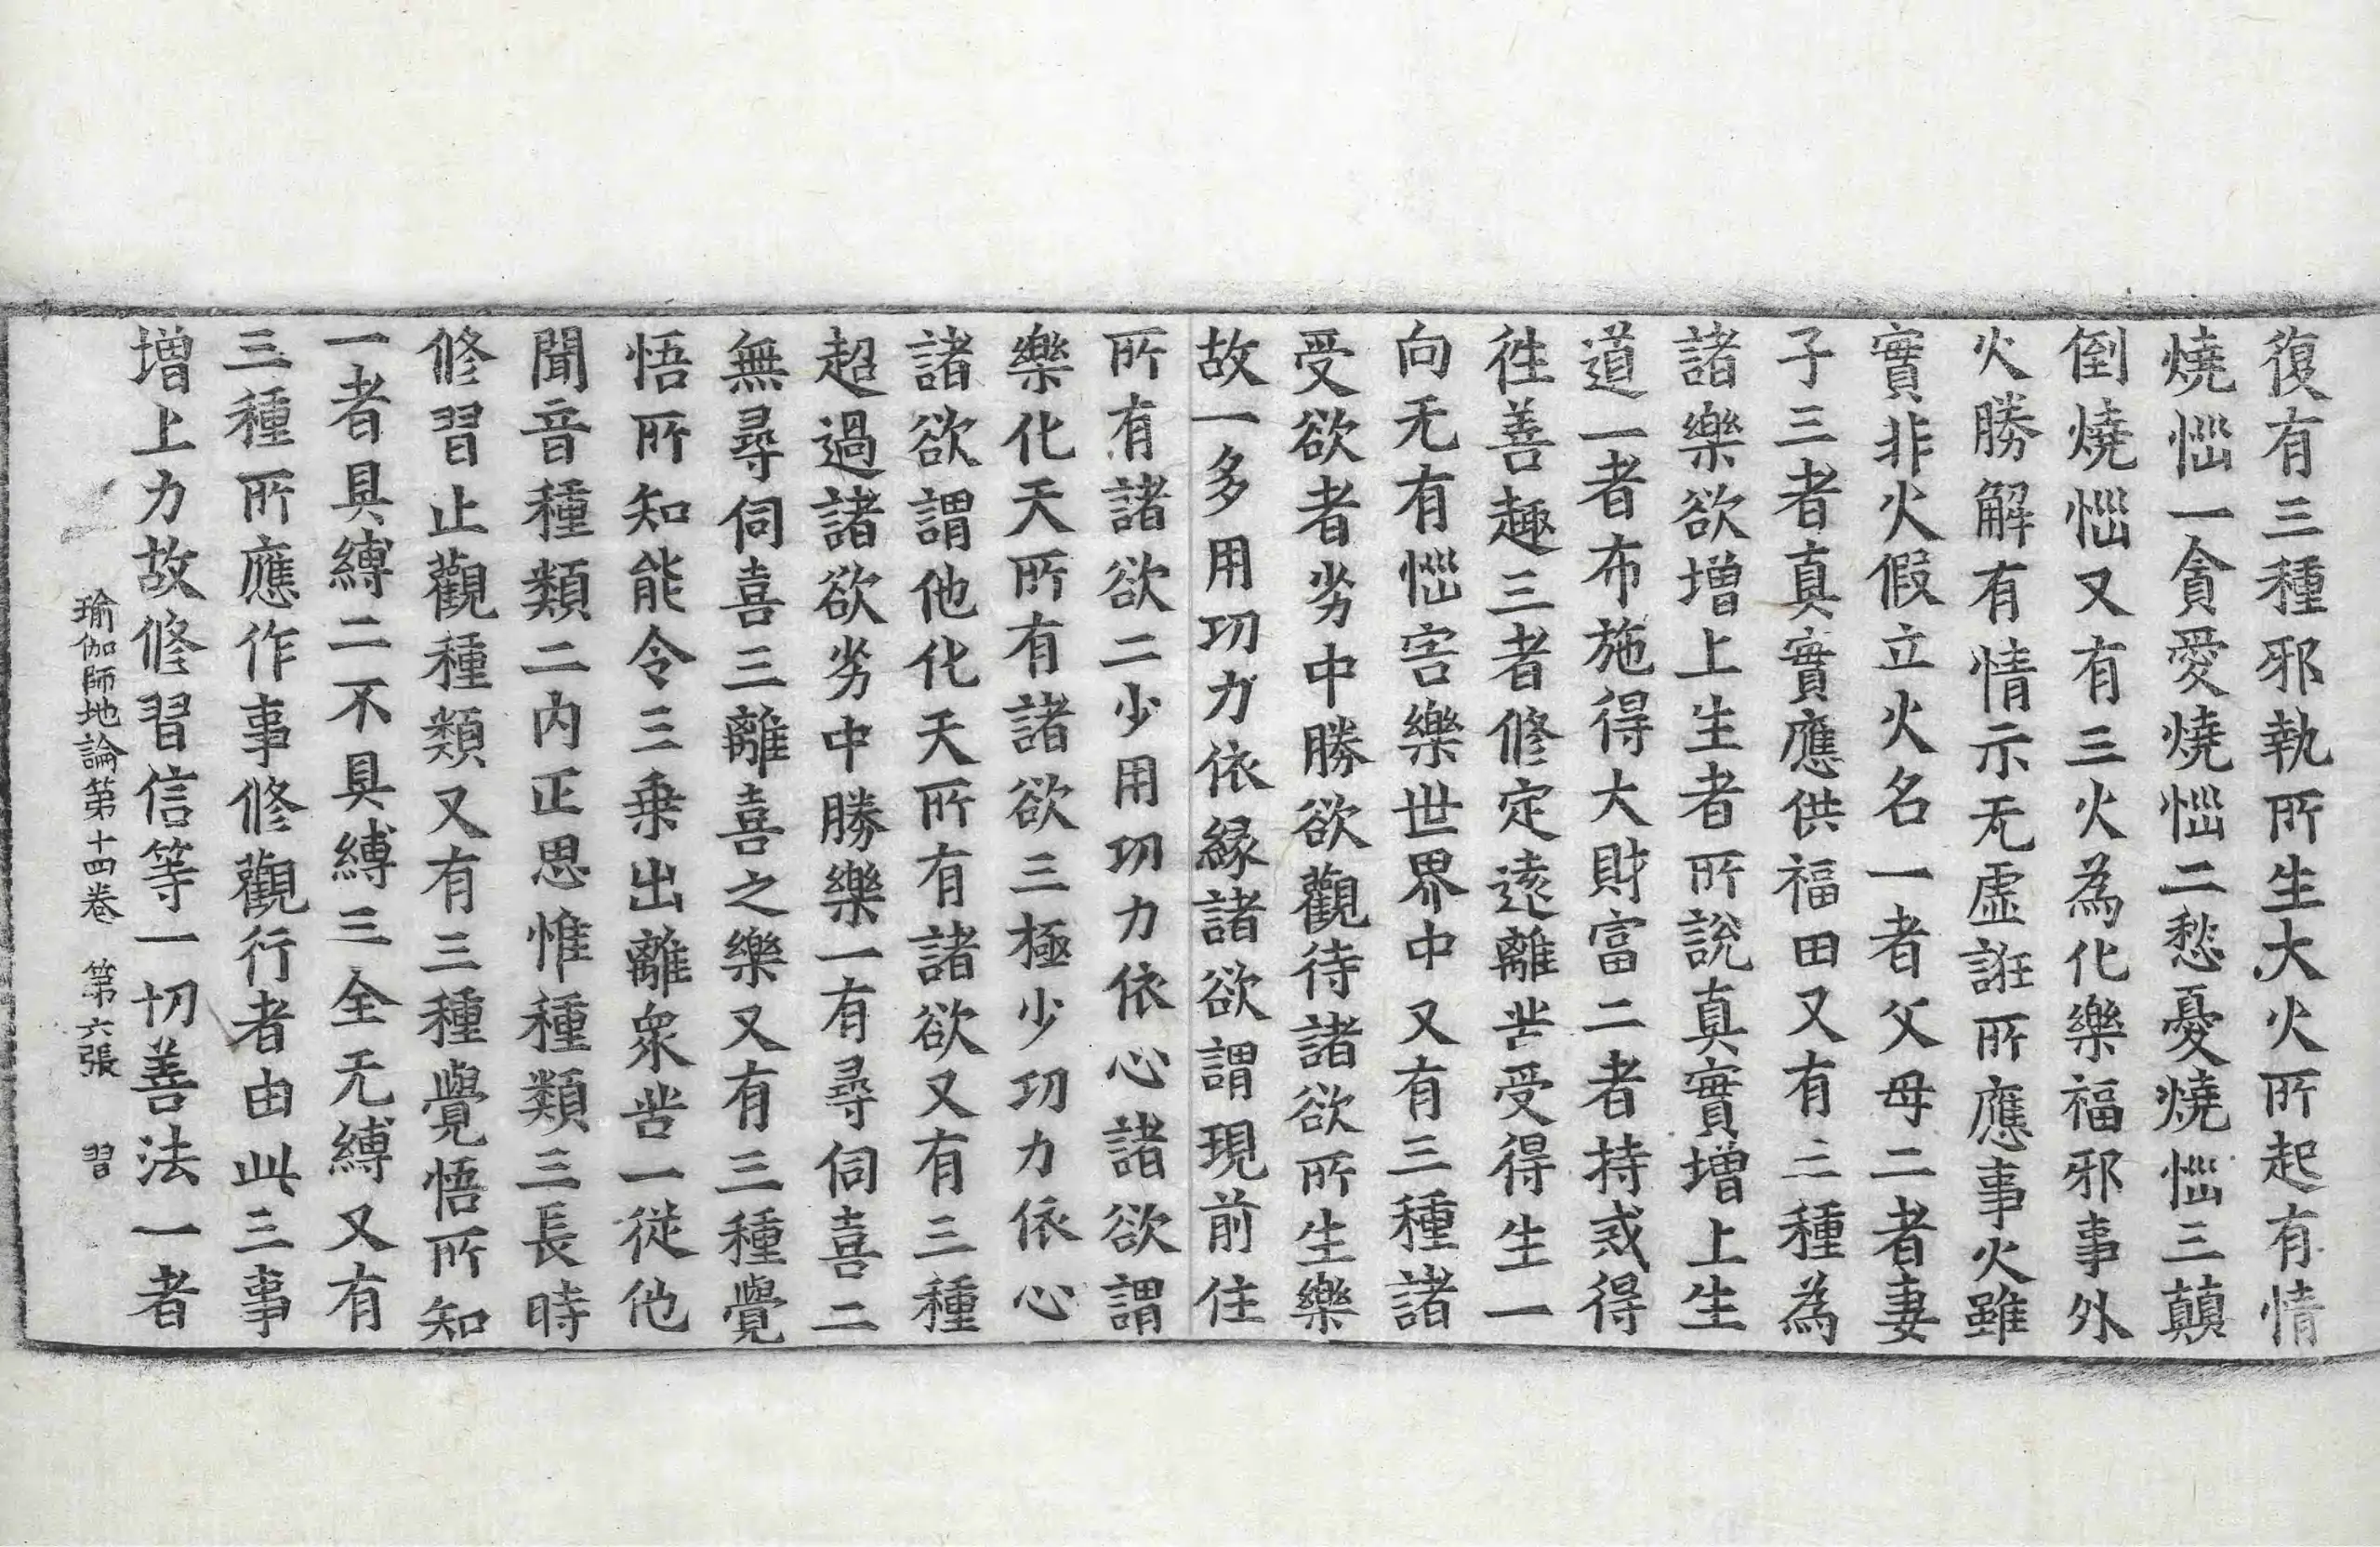 復有三種邪執所生大火所起有情
燒惱一貪愛燒惱二愁憂燒惱三顛
倒燒惱又有三火為化樂福邪事外
火勝解有情示无虛誑所應事火雖
實非火假立火名一者父母二者妻
子三者真實應供福田又有三種為
諸樂欲增上生者所說真實增上生
道一者布施得大財富二者持戒得
往善趣三者修定遠離苦受得生一
向无有惱害樂世界中又有三種諸
受欲者劣中勝欲觀待諸欲所生樂
故一多用功力依緣諸欲謂現前住
所有諸欲二少用功力依心諸欲謂
樂化天所有諸欲三極少功力依心
諸欲謂他化天所有諸欲又有三種
超過諸欲劣中勝樂一有尋伺喜二
無尋伺喜三離喜之樂又有三種覺
悟所知能令三乗出離衆苦一從他
聞音種類二內正思惟種類三長時
修習止觀種類又有三種覺悟所知
一者具縛二不具縛三全无縛又有
三種所應作事修觀行者由此三事
增上力故修習信等一切善法一者
瑜伽師地論第十四卷 第六張 習